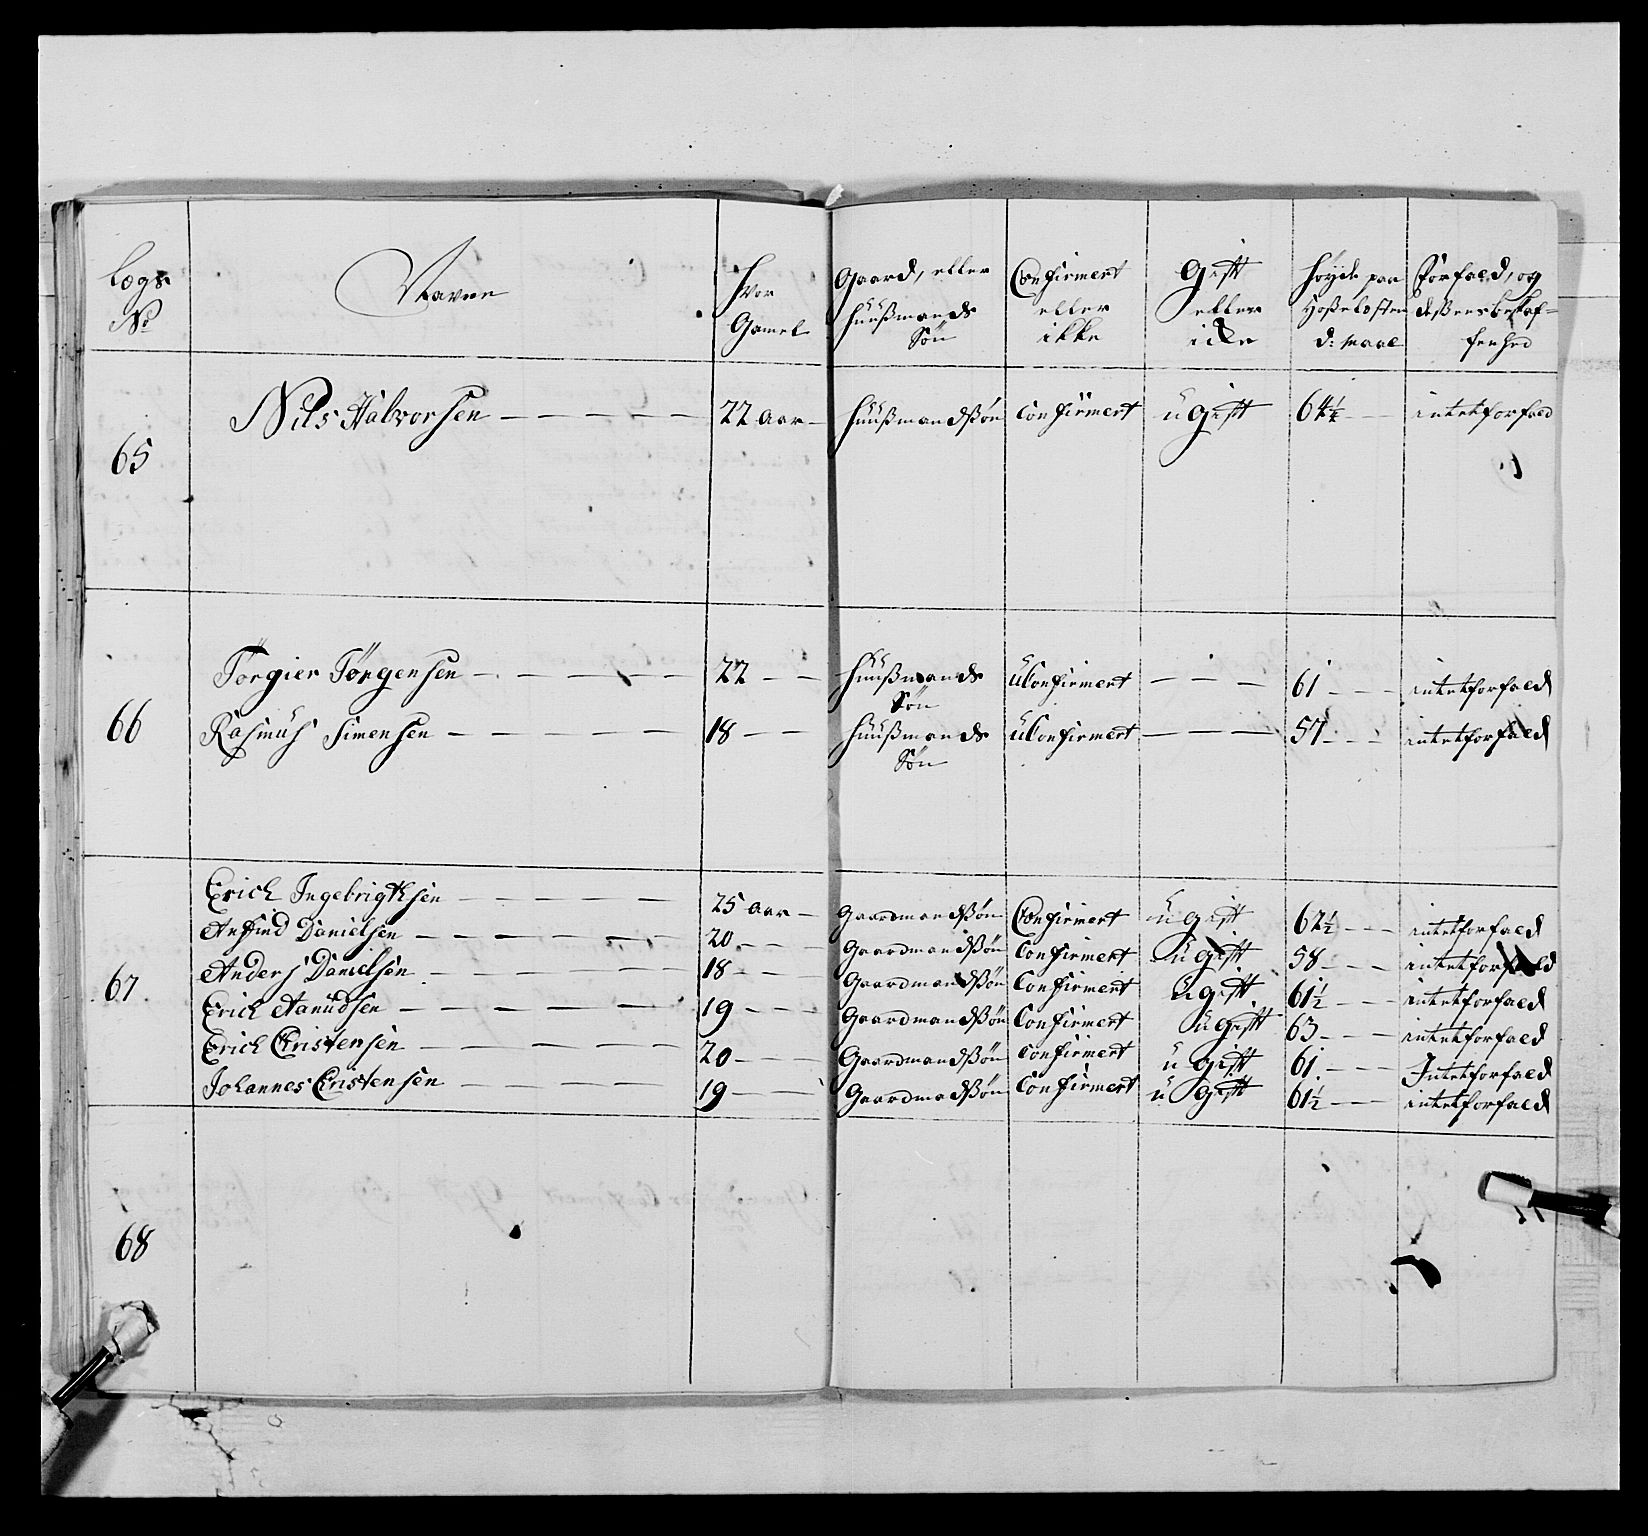 Lægs No | Navne | Hvor Gamel | Gaard, eller Huusmands Søn | Confirmert eller ikke | Gift eller icke | Höyde paa Hoseløsten d: Maal | Forfald, og deßens beskaf=fenhed
65 | Nils Halvorsen | 22 aar | Huusmandsøn | Confirmert | ugift | 64¼ | intet forfald
66 | Torgier Törgensen | 22 | Huusmands Søn | uConfirmert | — | 61 | intet forfald
Rasmus Simensen | 18 | Huusmands Søn | uConfirmert | — | 57 | intet forfald
67 | Erich Ingebrigtsen | 25 aar | Gaardmandsøn | Confirmert | ugift | 62½ | intet forfald
Anfind Danielsen | 20 | Gaardmandsøn | Confirmert | ugift | 58 | intet forfald
Anders Danielsen | 18 | Gaardmandsøn | Confirmert | ugift | 61½ | intet forfald
Erich Aamudsen | 19 | Gaardmandsøn | Confirmert | ugift | 63 | intet forfald
Erich Cristensen | 20 | Gaardmandsøn | Confirmert | ugift | 61 | Intet forfald
Johannes Cristensen | 19 | Gaardmadsøn | Confirmert | ugift | 61½ | intet forfald
68